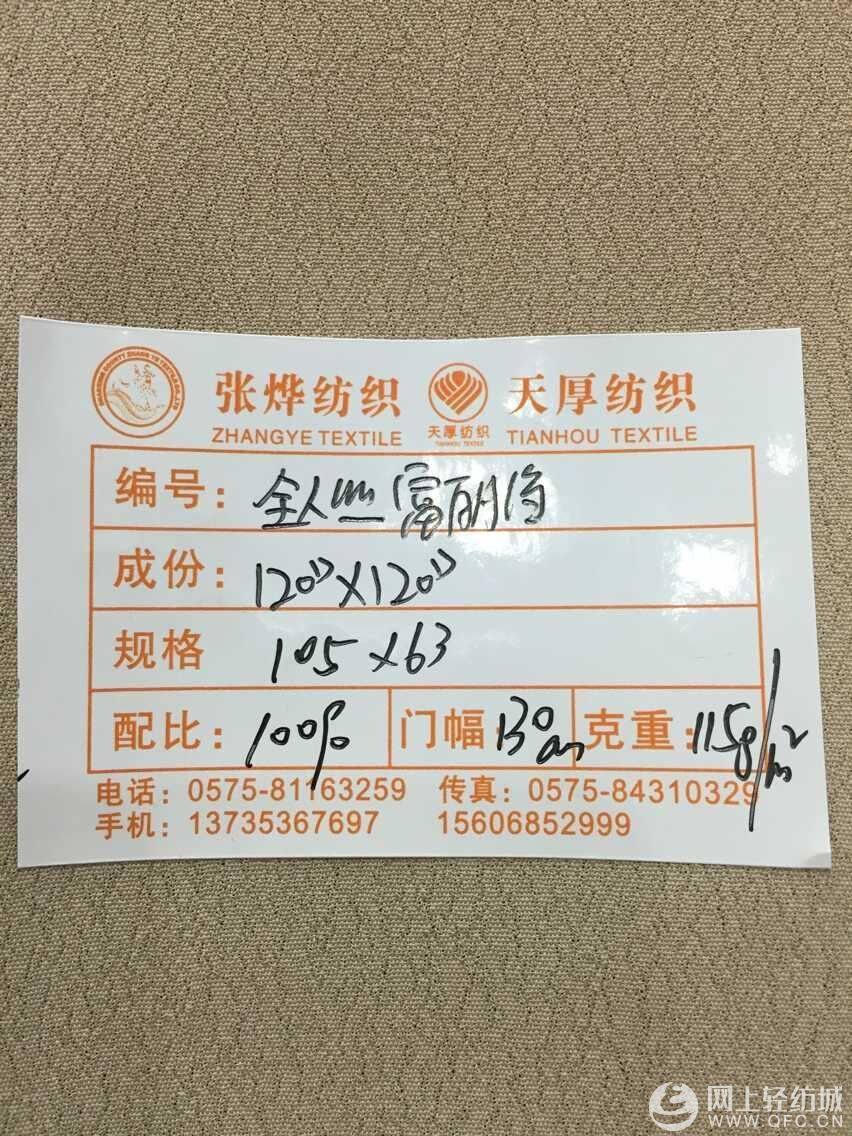 张烨纺织 天厚纺织 天厚纺织
ZHANGYE TEXTILE TIANHOU TEXTILE TIANHOU TEXTILE
编号：全人丝富丽绉
成份：120D×120D
规格 105×63
配比：100% 门幅：130cm 克重：115g/m²
电话：0575-81163259 传真：0575-84310329
手机：13735367697 15606852999
网上轻纺城
WWW.QFC.CN